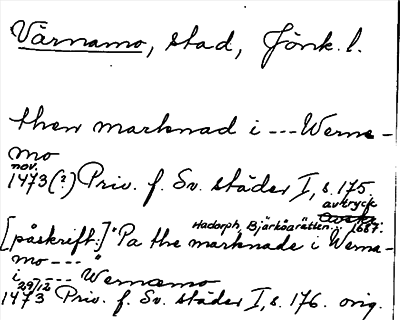 Värnamo, stad, Jönk. l.
then marknad i --- Werna-
mo
nov.
1473(?) Priv. f. Sv. städer I, s. 175
avtryck
Hadorph, Bjärköarätten, 1687.
[påskrift:] "Pa the marknade i Werna-
mo ---- "
i ---- Wernæmo
29/12
1473 Priv. f. Sv. städer I, s. 176. orig.